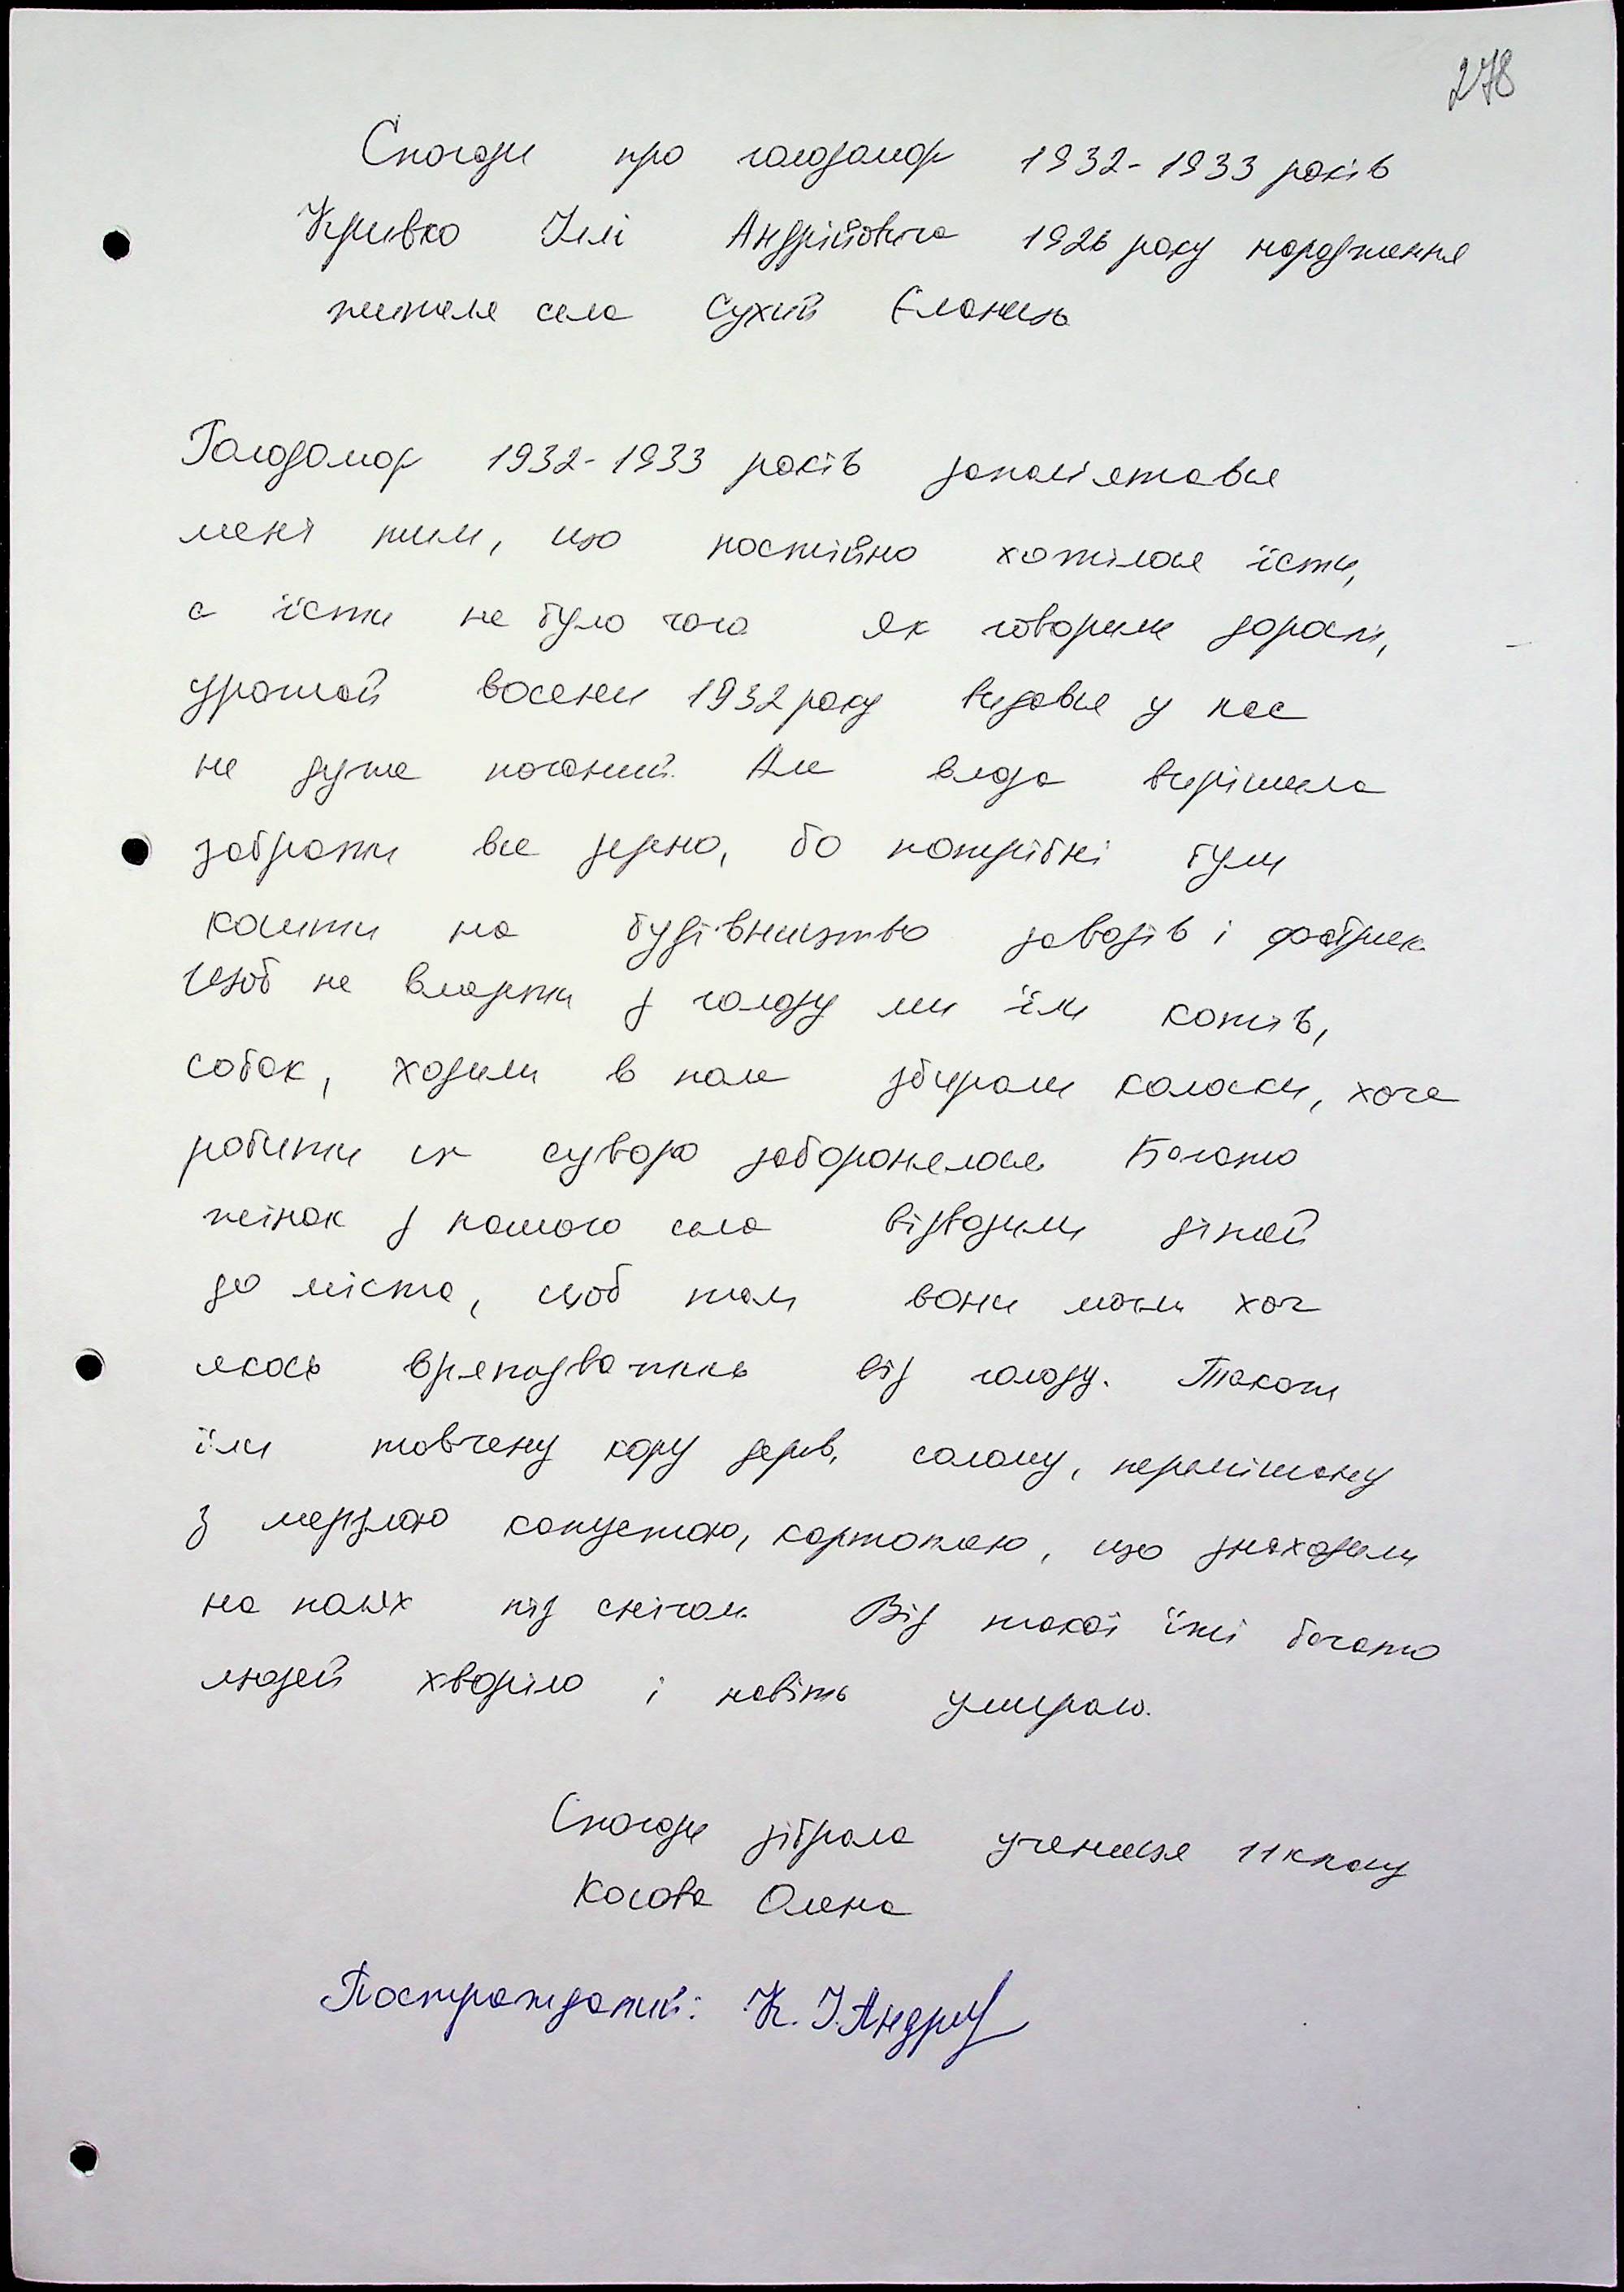 278
Спогади про голодомор 1932-1933 років
Кривко Ілі Андрійовича 1926 року народження
жителя села Сухий Єланець
Голодомор 1932-1933 років запам'ятався
мені тим, що постійно хотілося їсти,
а їсти не було чого Як говорили дорослі,
урожай восени 1932 року видався у нас
не дуже поганий. Але влада вирішила
забрати все зерно, бо потрібні були
кошти на будівництво заводів і фабрик.
Щоб не вмерти з голоду ми їли котів,
собак, ходили в поле збирали колоски, хоча
робити це суворо заборонялося. Багато
жінок з нашого села відводили дітей
до міста, щоб там вони могли хоч
якось врятуватись від голоду. Також
їли товчену кору дерев, солому, перемішану
з мерзлою капустою, картоплею, що знаходили
на полях під снігом. Від такої їжі багато
людей хворіло і навіть умирало.
Спогади зібрала учениця 11 класу
Косова Олена
Постраждалий: К. І. Андрій